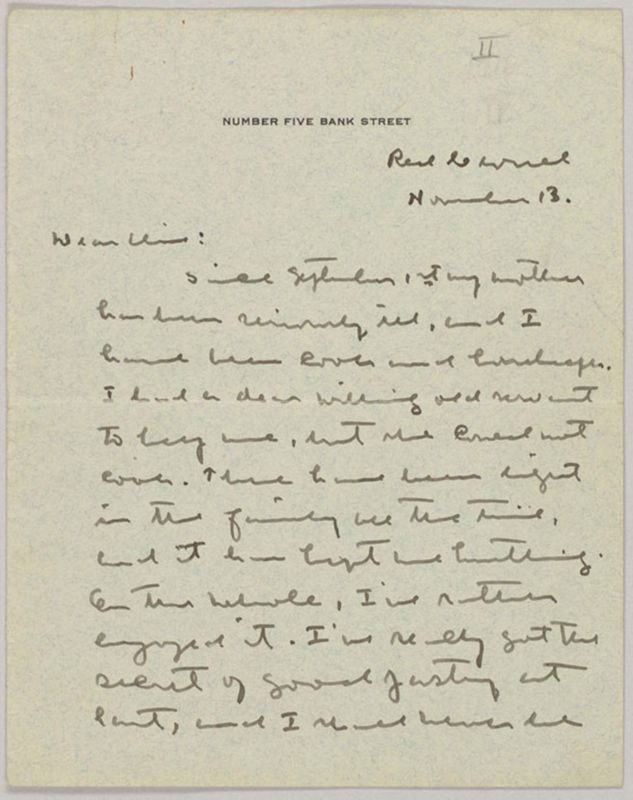 II
NUMBER FIVE BANK STREET
Red Cloud
November 13.
Dear Elsie:
Since September 1st my mother
has been seriously ill, and I
have been cook and housekeeper.
I had a dear willing old servant
to help me, but she could not
cook. There have been eight
in the family all the time,
and it has kept me hustling.
On the whole, I've rather
enjoyed it. I've really got the
secret of good pastry at
last, and I shall never be